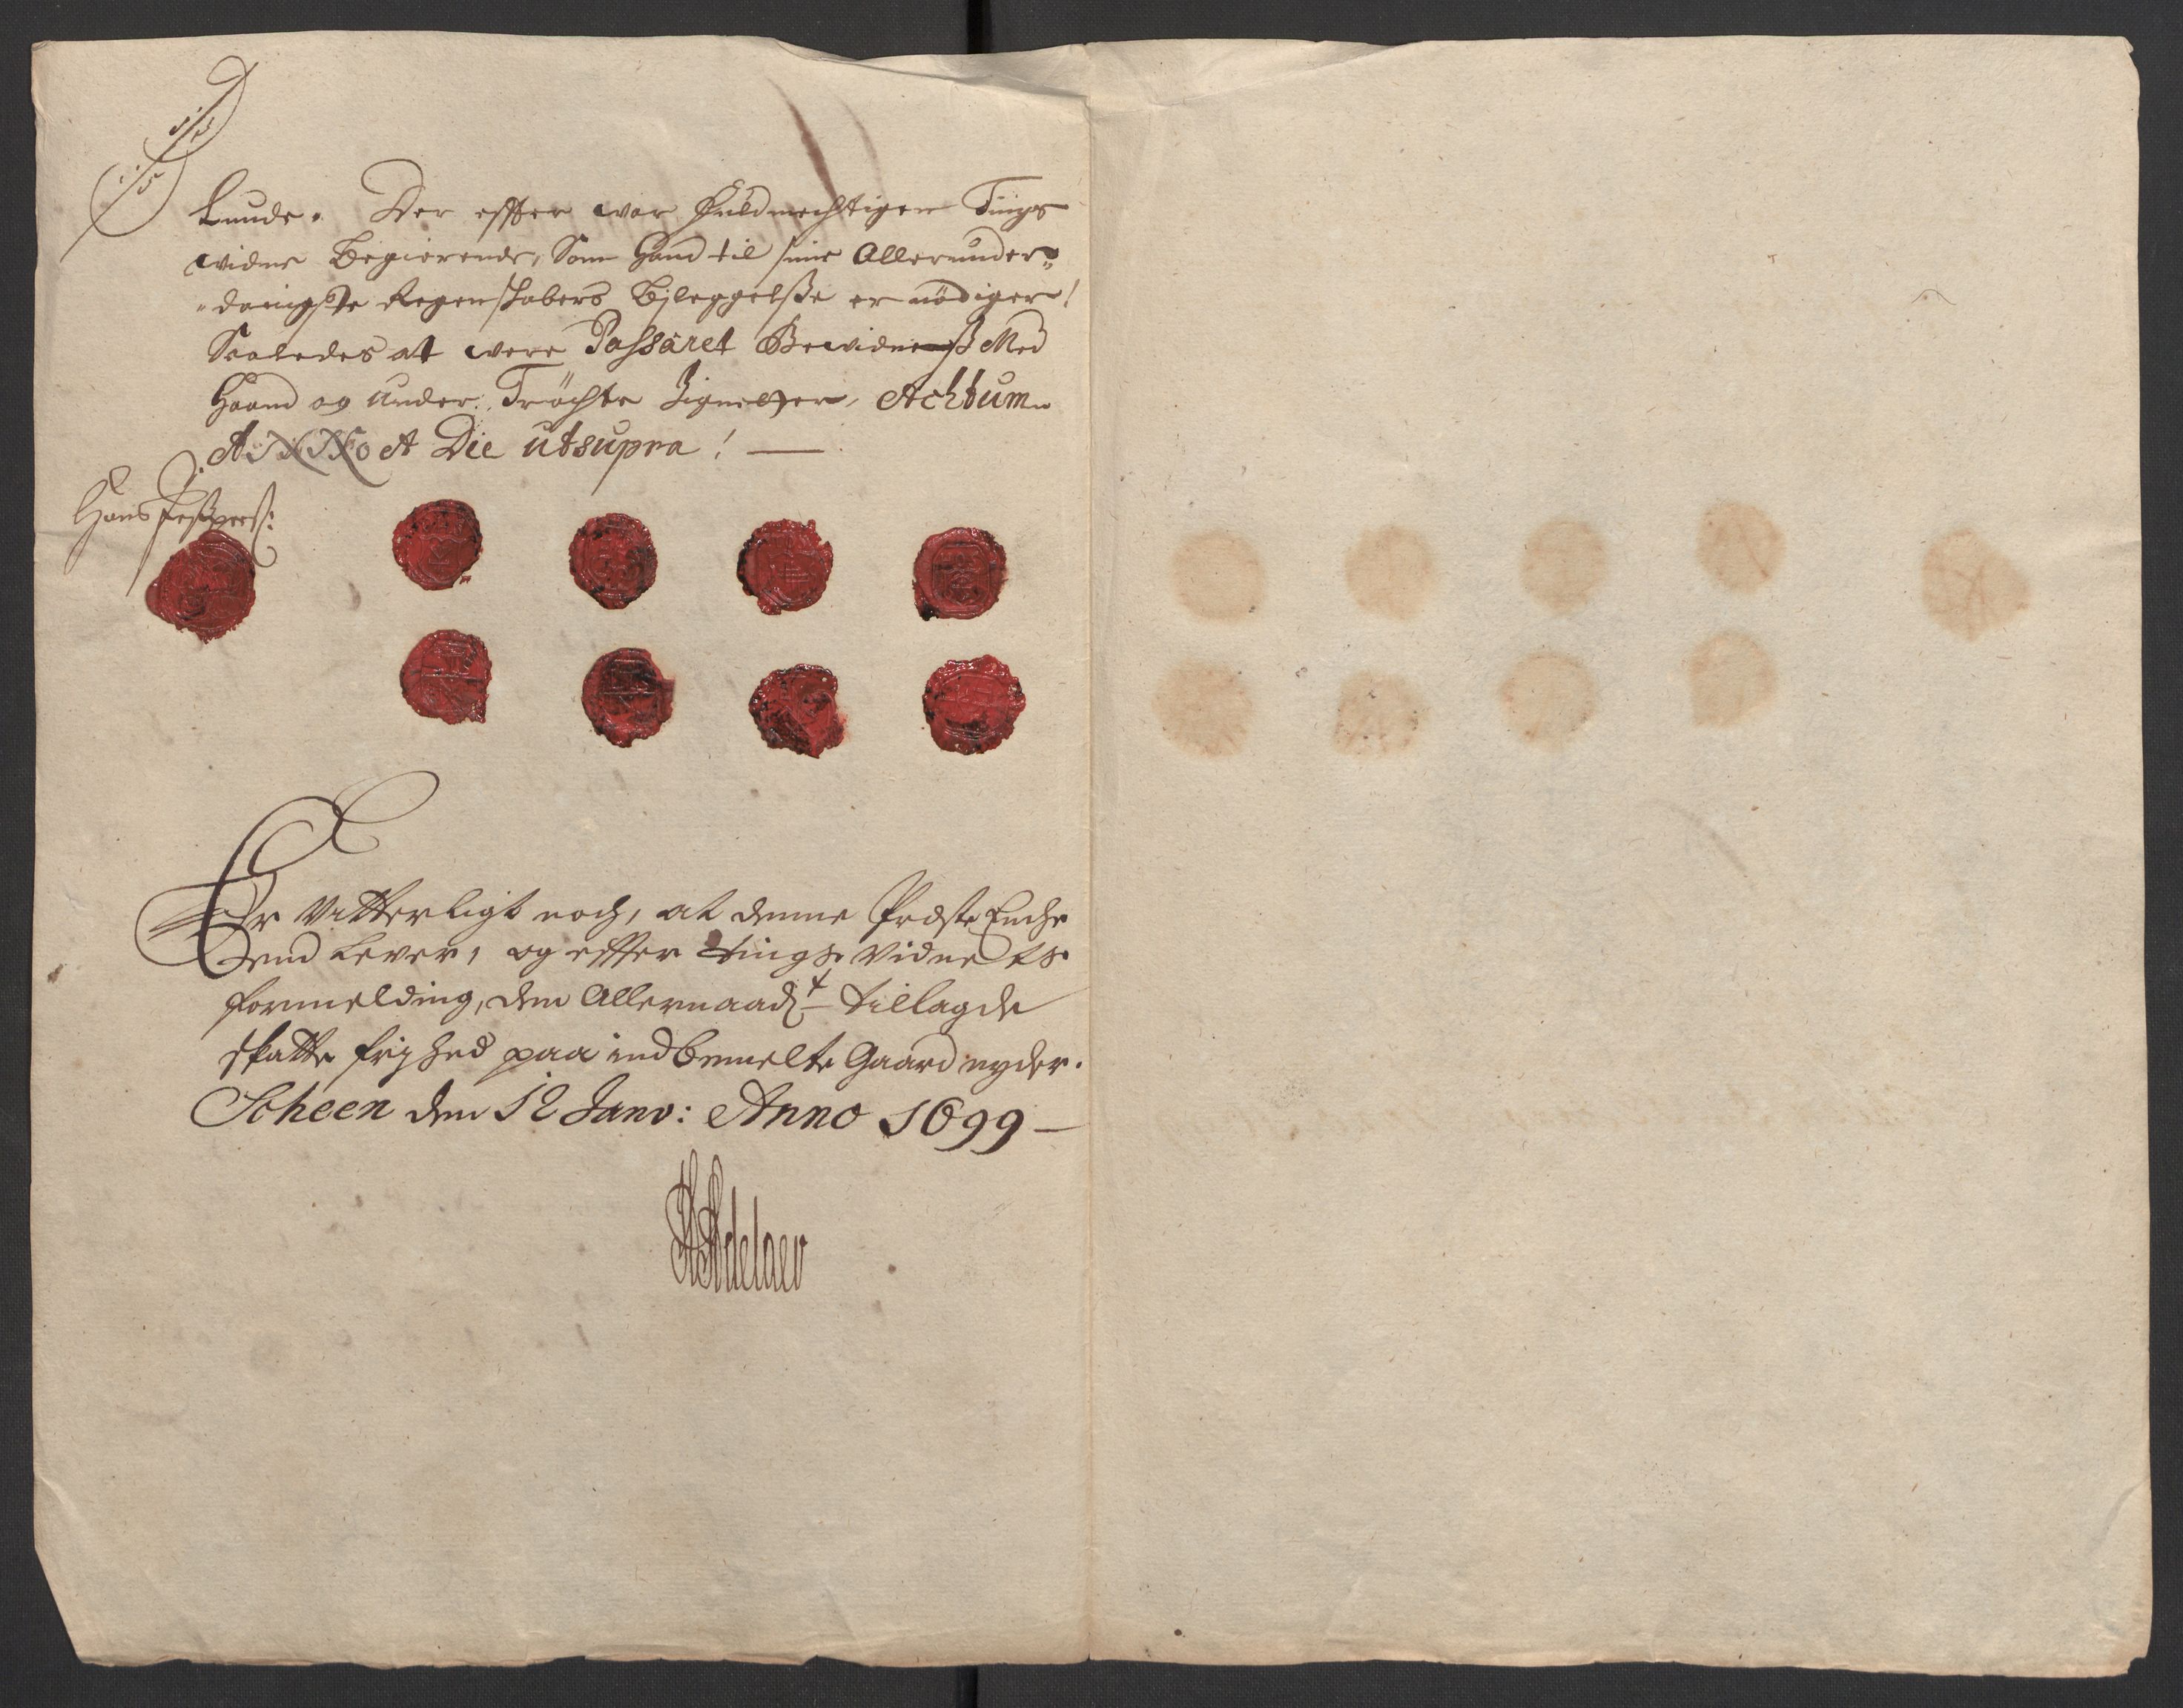 kunde. Der effter war fuldmechtigen Tings
widne Begierende, Som hand til sine Allerunder„
„danigste Regenskabers Bjleggelße er nödigen!
Saaledes at were Passaret Bewidneß Med
Haand og under Tröchte Zigneter, Actum„
Anno et Die utsupra! —
Hans Jeßperß:
Er Vitterligt noch, at denne Præste Enche
End Lever, og effter tings Vidnets
formelding, den Allernaadt tillagde
skatte frjhed paa indbemelte Gaard nyder.
Scheen den 12 Janv: Anno 1699 —
Adelaer